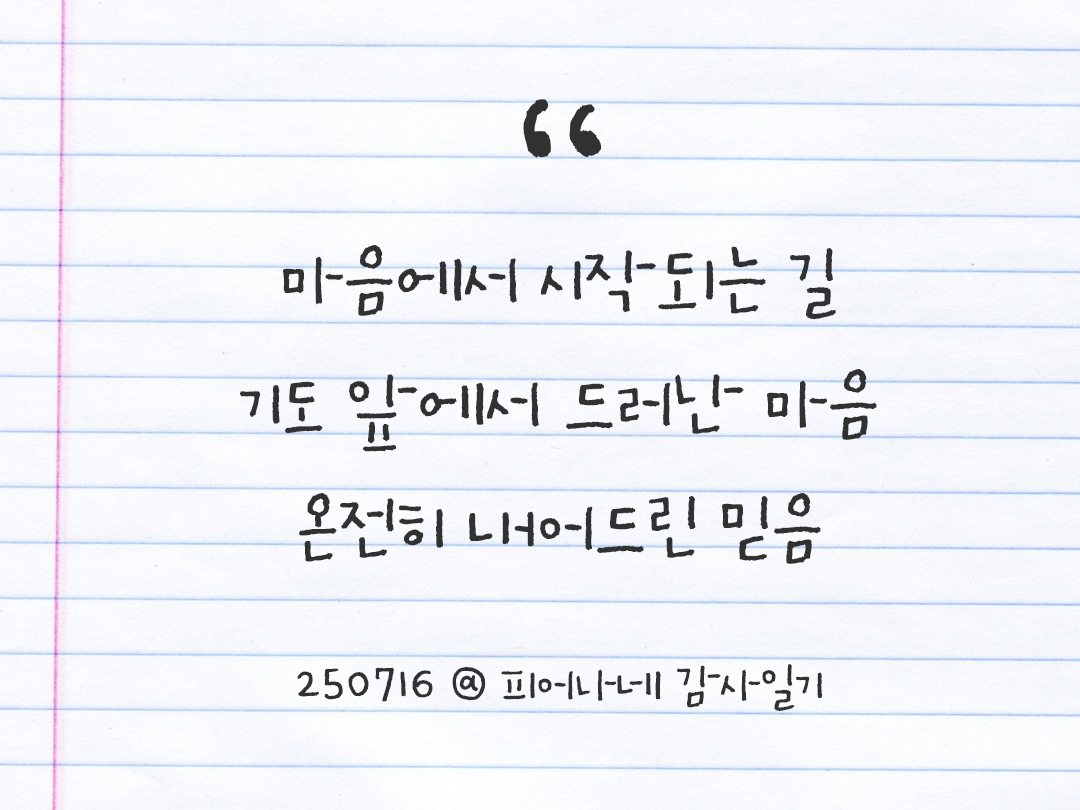 “
마음에서 시작되는 길
기도 앞에서 드러난 마음
온전히 내어드린 믿음
250716 @ 피어나네 감사일기